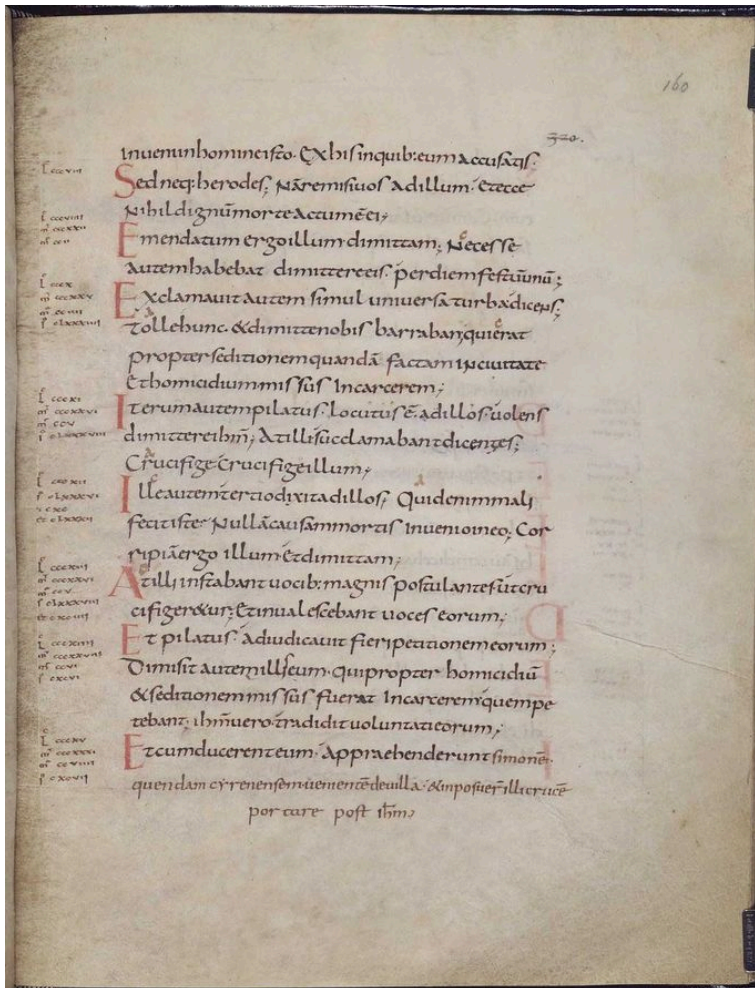 160
320.
inuenin homine isto. Ex his inquib: eum accusatis.
Sed neq: herodes; Nā remisi uos ad illum. Et ecce
Nihil dignū morte actum ē ei;
Emendatum ergo illum dimittam; Necesse
autem habebat dimittere eis. per diem festū unū;
Exclamauit autem simul uniuersa turba dicens;
Tolle hunc. & dimitte nobis barraban; qui erat
propter seditionem quandā factam in ciuitate
Et homicidium missus In carcerem;
Iterum autem pilatus. locutus ē. ad illos. uolens
dimittere ihm; At illi succlamabant dicentes;
Crucifige Crucifige illum;
Ille autem tertio dixit ad illos; Quid enim mali
fecit iste; Nullā causam mortis Inuenio in eo; Cor
ripiā ergo illum. Et dimittam;
At illi instabant uocib: magnis postulantes ut cru
cifiger&ur; Et inualescebant uoces eorum;
Et pilatus. adiudicauit fieri petitionem eorum;
Dimisit autem illis eum. qui propter homicidiū
& seditionem missus fuerat In carcerem quem pe
tebant; ihm uero. tradidit uoluntati eorum;
Et cum ducerent eum. Appraehenderunt simonē.
quendam cyrenensem uenientē de uilla. & inposuer illi crucē
portare post ihm;